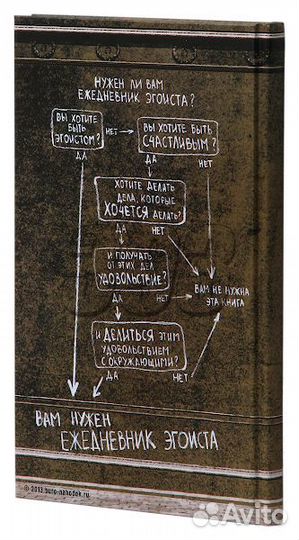 НУЖЕН ЛИ ВАМ
ЕЖЕДНЕВНИК ЭГОИСТА?
ВЫ ХОТИТЕ
БЫТЬ
ЭГОИСТОМ?
НЕТ
ВЫ ХОТИТЕ БЫТЬ
СЧАСТЛИВЫМ?
ДА
ДА
НЕТ
ХОТИТЕ ДЕЛАТЬ
ДЕЛА, КОТОРЫЕ
ХОЧЕТСЯ ДЕЛАТЬ?
ДА
НЕТ
И ПОЛУЧАТЬ
ОТ ЭТИХ ДЕЛ
УДОВОЛЬСТВИЕ?
ВАМ НЕ НУЖНА
ЭТА КНИГА
ДА
НЕТ
И ДЕЛИТЬСЯ ЭТИМ
УДОВОЛЬСТВИЕМ
С ОКРУЖАЮЩИМИ?
ДА
НЕТ
ВАМ НУЖЕН
ЕЖЕДНЕВНИК ЭГОИСТА
© 2013. buro-nahodok.ru
Avito